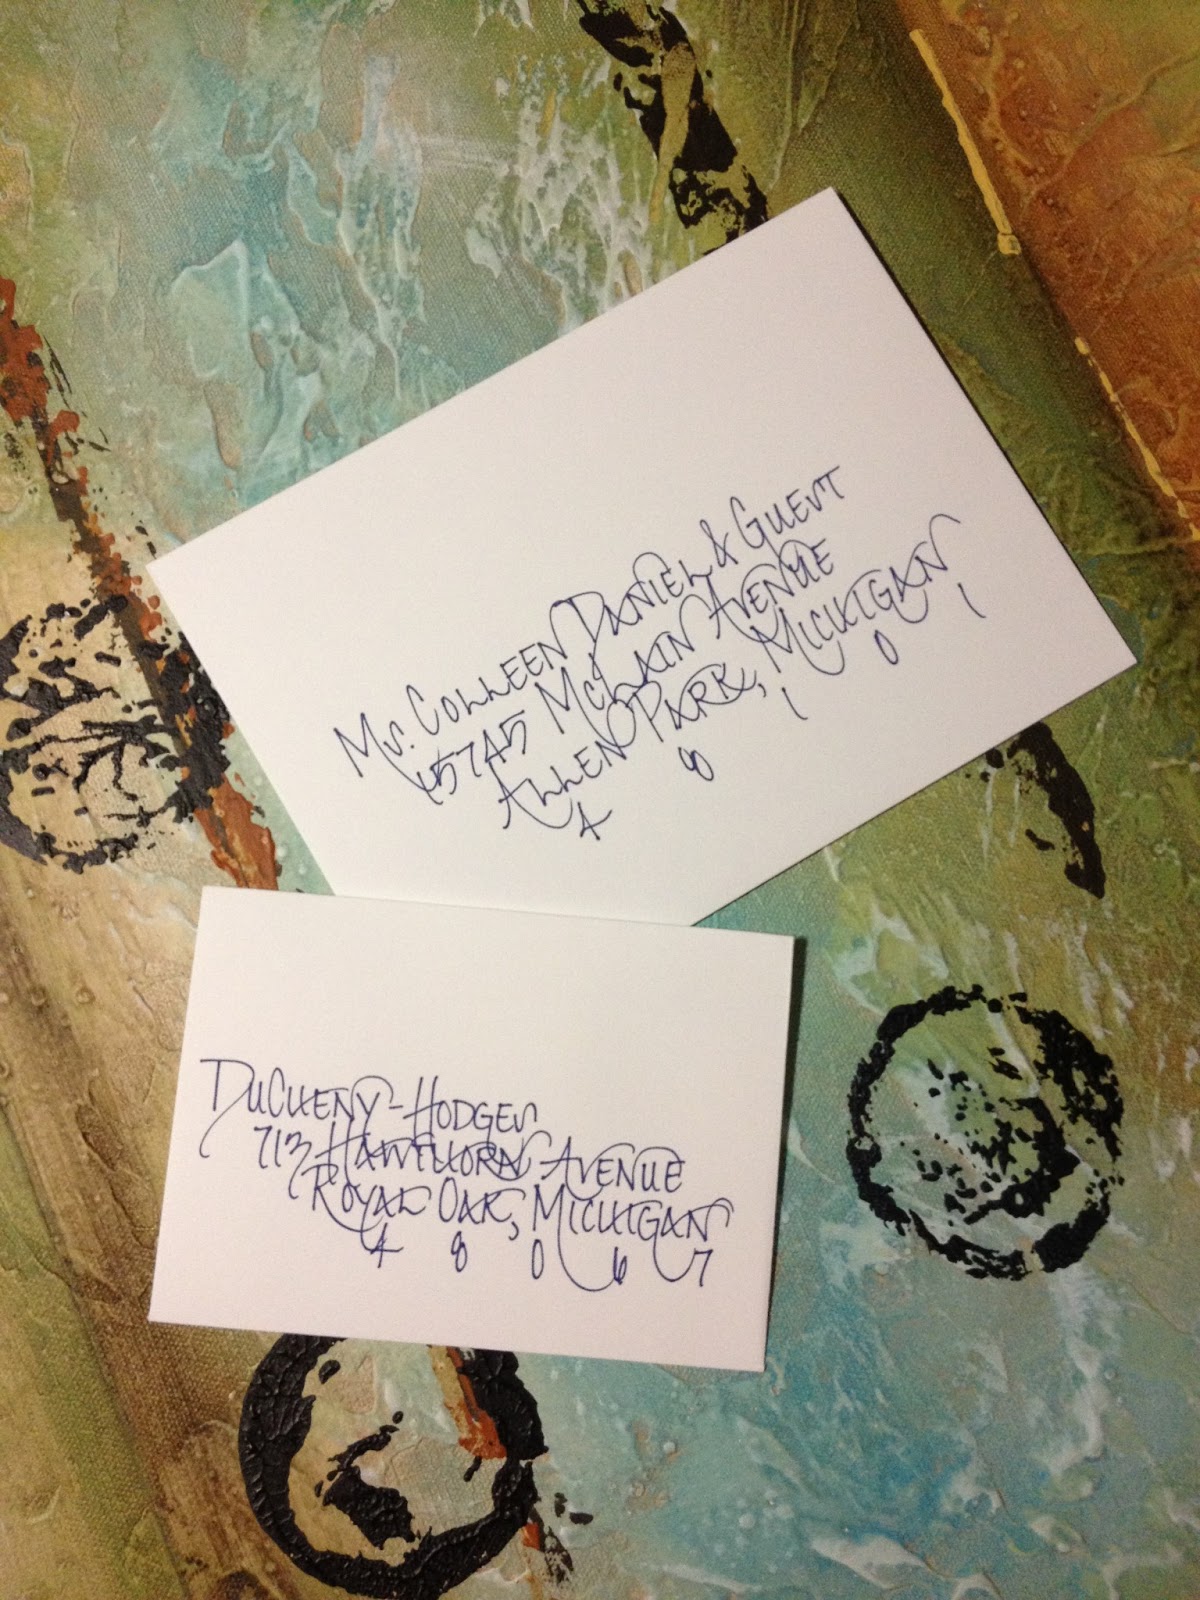 Ms. Colleen Daniel & Guest
15745 McLain Avenue
Allen Park, Michigan
4 8 1 0 1
DuCheny-Hodges
713 Hawthorn Avenue
Royal Oak, Michigan
4 8 0 6 7